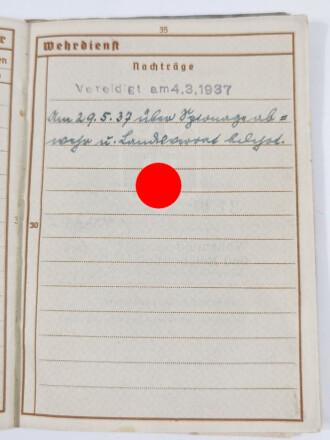 35
Wehrdienst
Nachträge
Vereidigt am 4.3.1937
Am 29.5.37 über Spionage ab=
wehr u. Landesverrat belehrt.
30